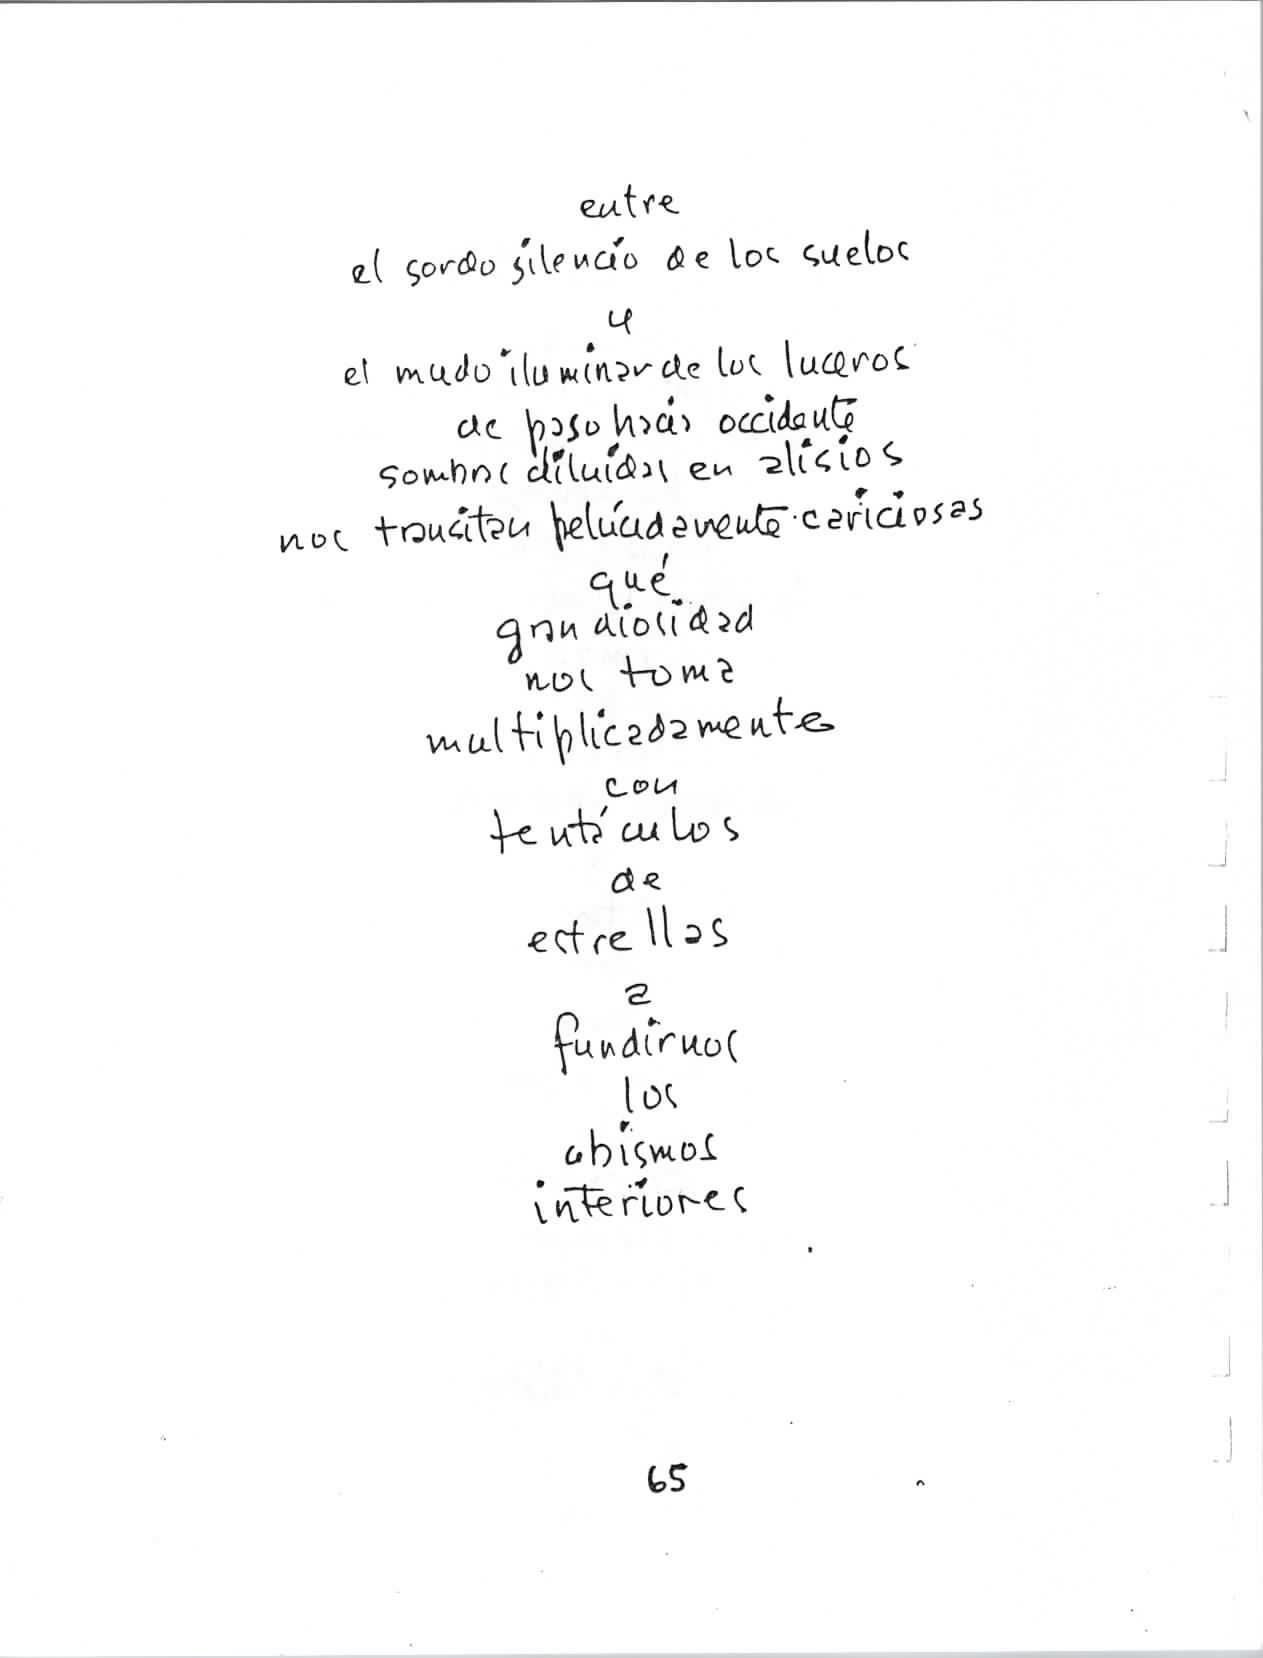 entre
el sordo silencio de los suelos
y
el mudo iluminar de los luceros
de paso hacia occidente
sombras diluidas en alisios
nos transitan pelúcidamente cariciosas
qué
grandiosidad
nos toma
multiplicadamente
con
tentáculos
de
estrellas
a
fundirnos
los
abismos
interiores
65